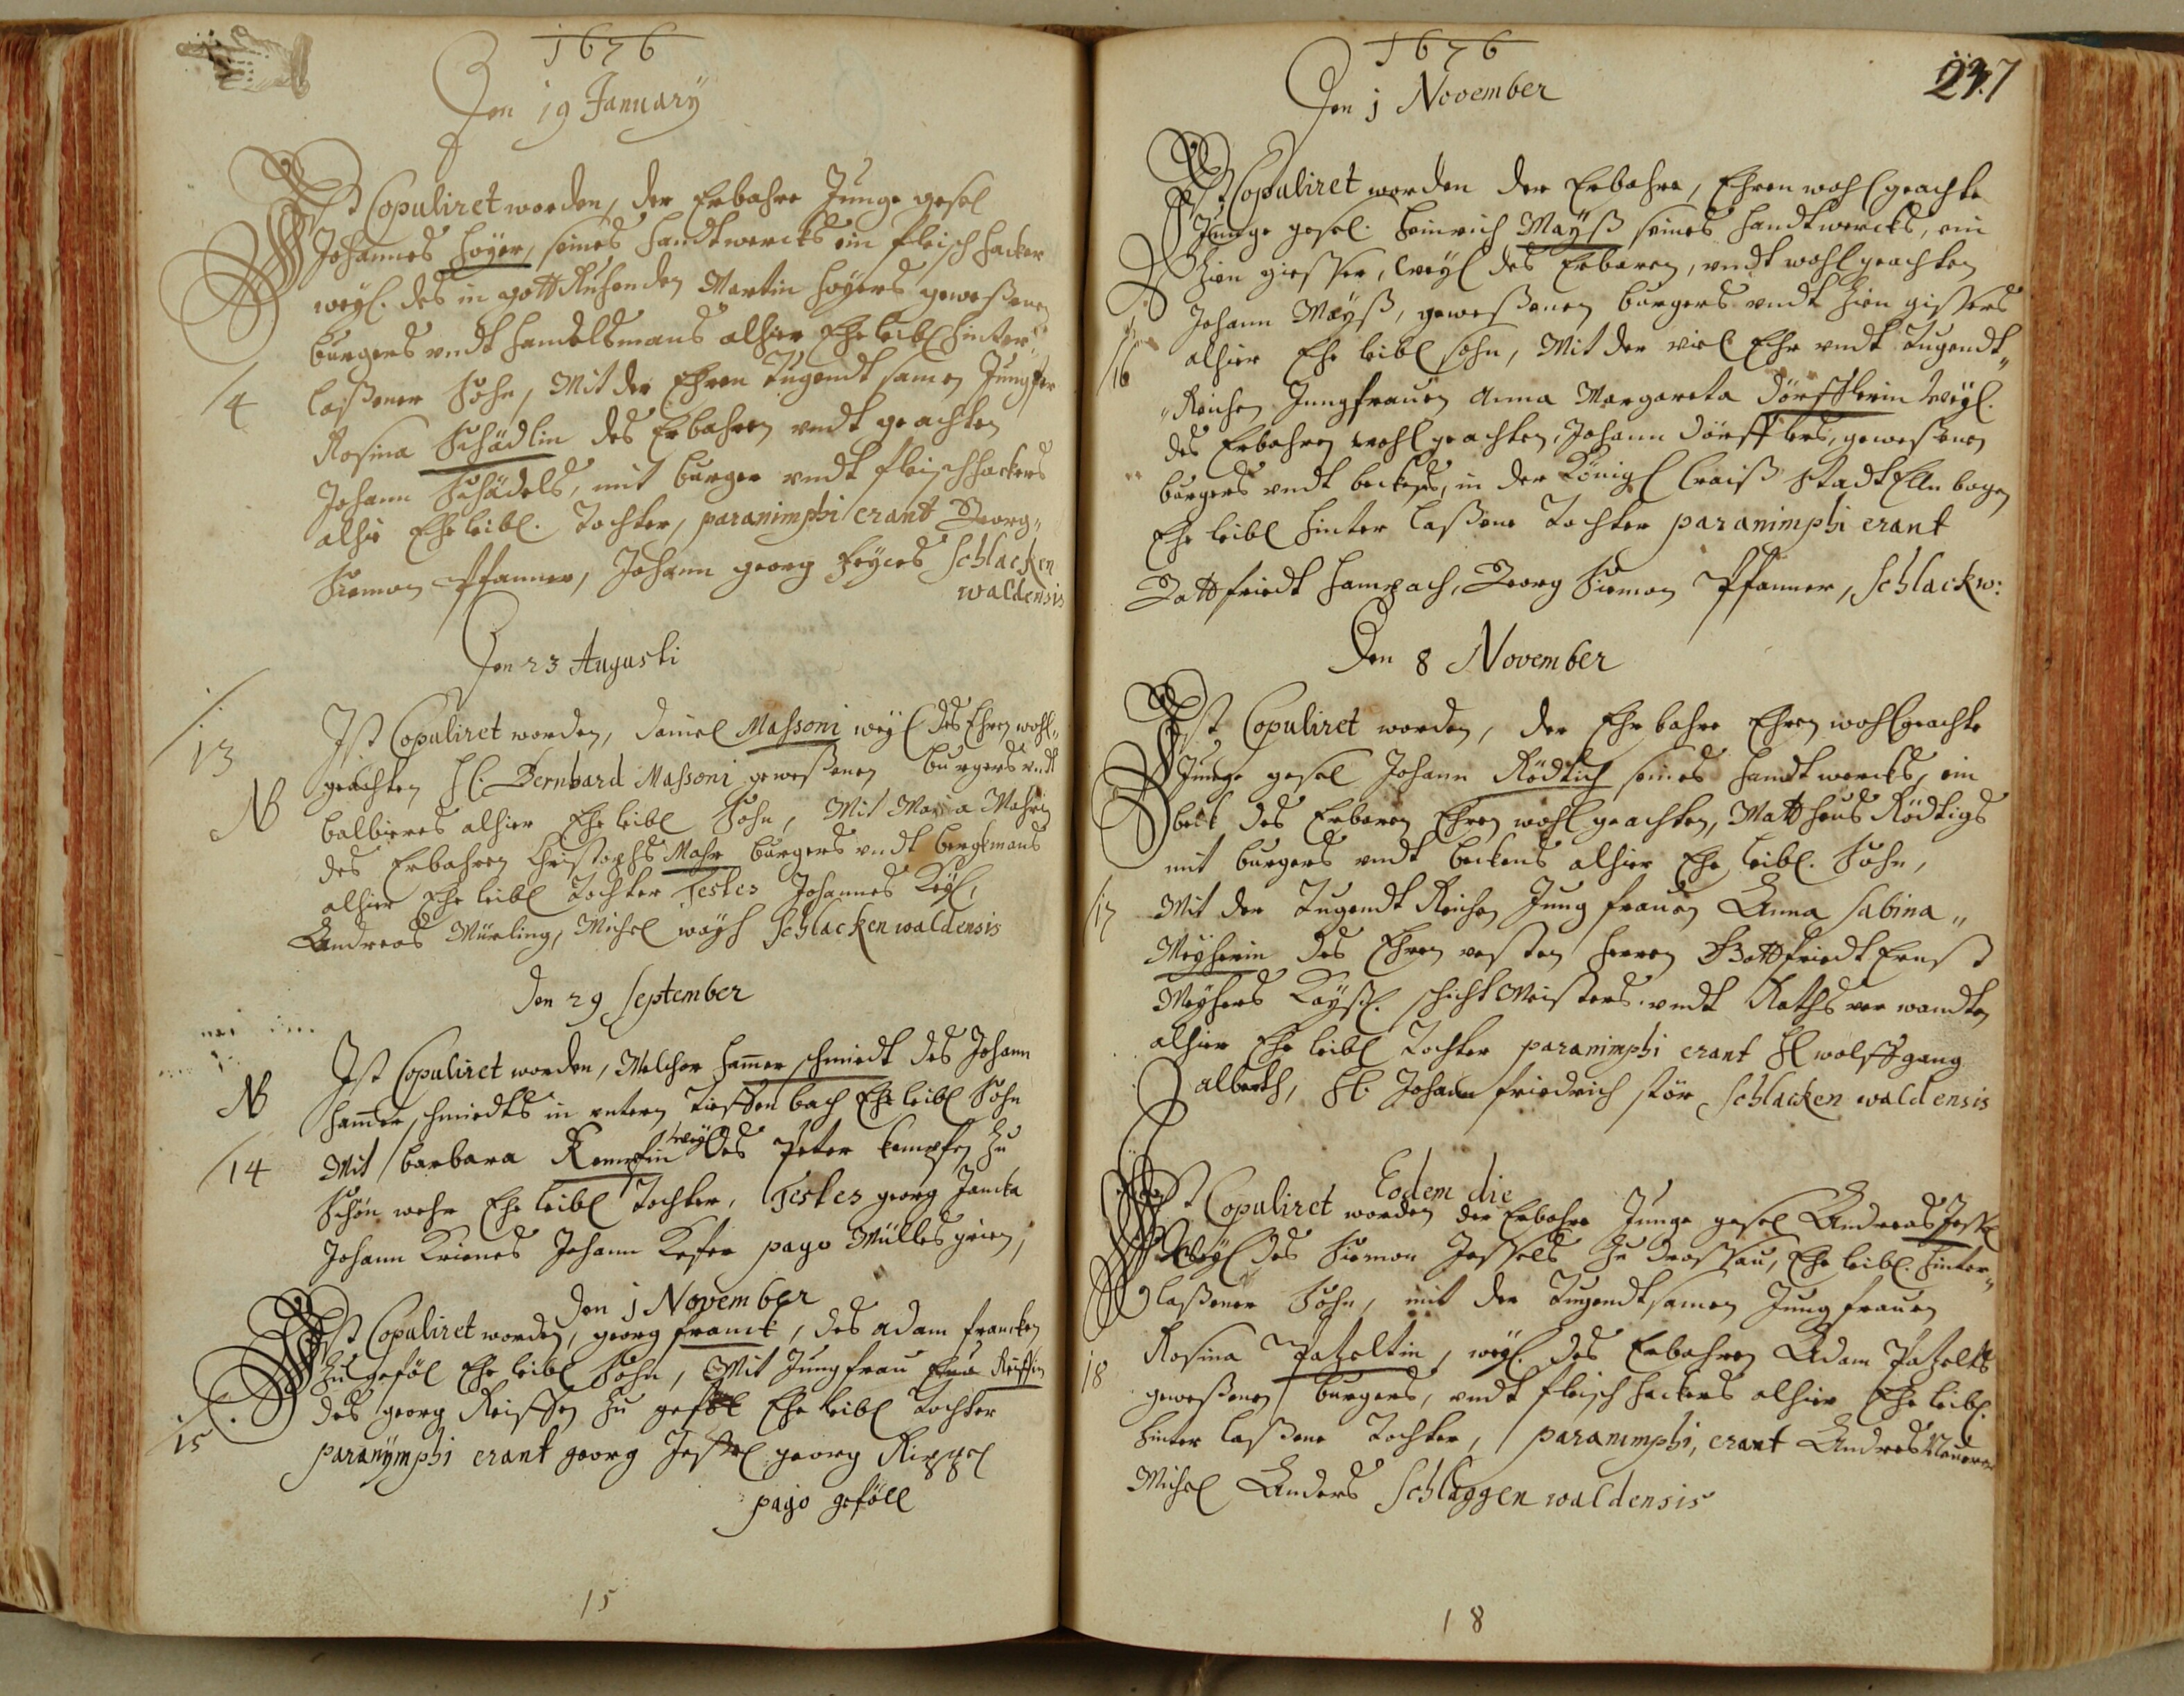 1676
Den 19 January
Ist Copuliret worden, der Erbahre Junge gesel
Johannes Höyer, seines Handtwercks ein fleischhacker
weyl. des in gott Ruhenden Martin Höyers geweßenen
burgers undt Handelsmans alhier Ehe leibl hinter„
4
laßener Sohn, Mit der Ehren Tugendtsamen Jungfer
Rosina Schädlin des Erbahren undt geachten
Johann Schädels, mit burger undt fleischhackers
alhie Ehe leibl. Tochter, paranimphi erant Georg„
Siemon Pfanner, Johann georg Schlacken
waldensis
Den 23 Augusti
13
Ist Copuliret worden, Daniel Massoni weyl des Ehren wohl„
geachten H. Bernhard Massoni geweßenen burgers undt
NB
balbierers alhier Ehe leibl Sohn, Mit Maria Mahrin
des Erbahren Christophs Mahr burgers undt bergkmans
alhier Ehe leibl Tochter Testes Johannes Keyl,
Andreas Mürling, Michel Schlackenwaldensis
Den 29 September
Ist Copuliret worden, Melchor Hamerschmiedt des Johann
NB
Hamerschmiedts in untern Tieffenbach Ehe leibl Sohn
14
Mit barbara Kempfin weyl des Peter kempfen zu
Schön wehr Ehe leibl Tochter, Testes georg Jancka
Johann Krienes Johann Kefer pago Müllesgrien,
Den 1 November
Ist Copuliret worden, georg franck, des adam francken
zu geföl Ehe leibl Sohn, Mit Jungfrau Reissin
des georg Reissen zu geföl Ehe leibl Tochter
15
paranymphi erant georg Jessel georg Rippel
pago geföll
15
1676
247
Den 1 November
Ist Copuliret worden der Erbahre, Ehren wohl geachte
Junge gesel. Heinrich Mayß seines handtwercks, ein
Zien giesser, weyl des Erbaren, undt wohl geachten
Johann Mayß, geweßenen burgers undt Zien gissers
16
alhier Ehe leibl sohn, Mit der viel Ehr undt Tugendt„
„Reichen Jungfrauen Anna Margareta Dörfflerin weyl.
des Erbahren wohl geachten, Johann Dörfflers, geweßenen
burgers undt beckens, in der Königl Craiß Stadt Ellnbogen
Ehe leibl hinter laßene Tochter paranimphi erant
Gottfriedt Hampach, Georg Siemon Pfanner, Schlackw:
Den 8 November
Ist Copuliret worden, der Ehrbahre Ehren wohlgeachte
Junge gesel Johann Rödtich seines handtwercks, ein
beck des Erbaren Ehren wohl geachten, Mattheus Rödtigs
mit burgers undt beckens alhier Ehe leibl. Sohn,
17
Mit der Tugendt Reichen Jungfrauen Anna Sabina„
Meyherin des Ehren vesten Herren Gottfriedt Ernst
Meyhers Kayß. schichtMeisters undt Raths ver wandten
alhier Ehe leibl Tochter paranimphi erant H wolffgang
alberth, H. Johann friedrich stör Schlackenwaldensis
Eodem die
Ist Copuliret worden der Erbahre Junge gesel Andreas Jessl
Weyl des Siemon Jessels zu drossau, Ehe leibl. hinter„
laßener Sohn, mit der Tugendtsamen Jungfrauen
18
Rosina Patzeltin, weyl. des Erbahren Adam Patzelts
geweßenen burgers, undt fleisch hackers alhier Ehe leibl.
hinter laßene Tochter, paranimphi, erant Andres
Michel Anders Schlaggenwaldensis
18